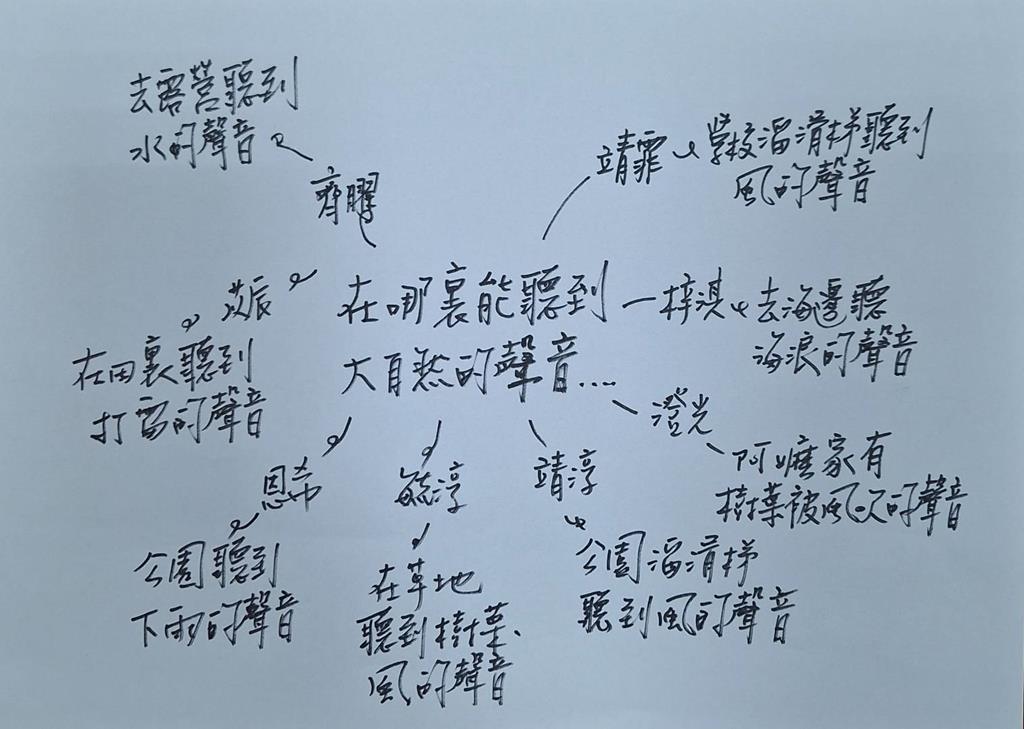 在哪裏能聽到
大自然的聲音....
齊曜
去露營聽到
水的聲音
靖霏
學校溜滑梯聽到
風的聲音
梓淇
去海邊聽
海浪的聲音
澄光
阿嬤家有
樹葉被風吹的聲音
靖淳
公園溜滑梯
聽到風的聲音
毓淳
在草地
聽到樹葉、
風的聲音
恩希
公園聽到
下雨的聲音
在田裏聽到
打雷的聲音